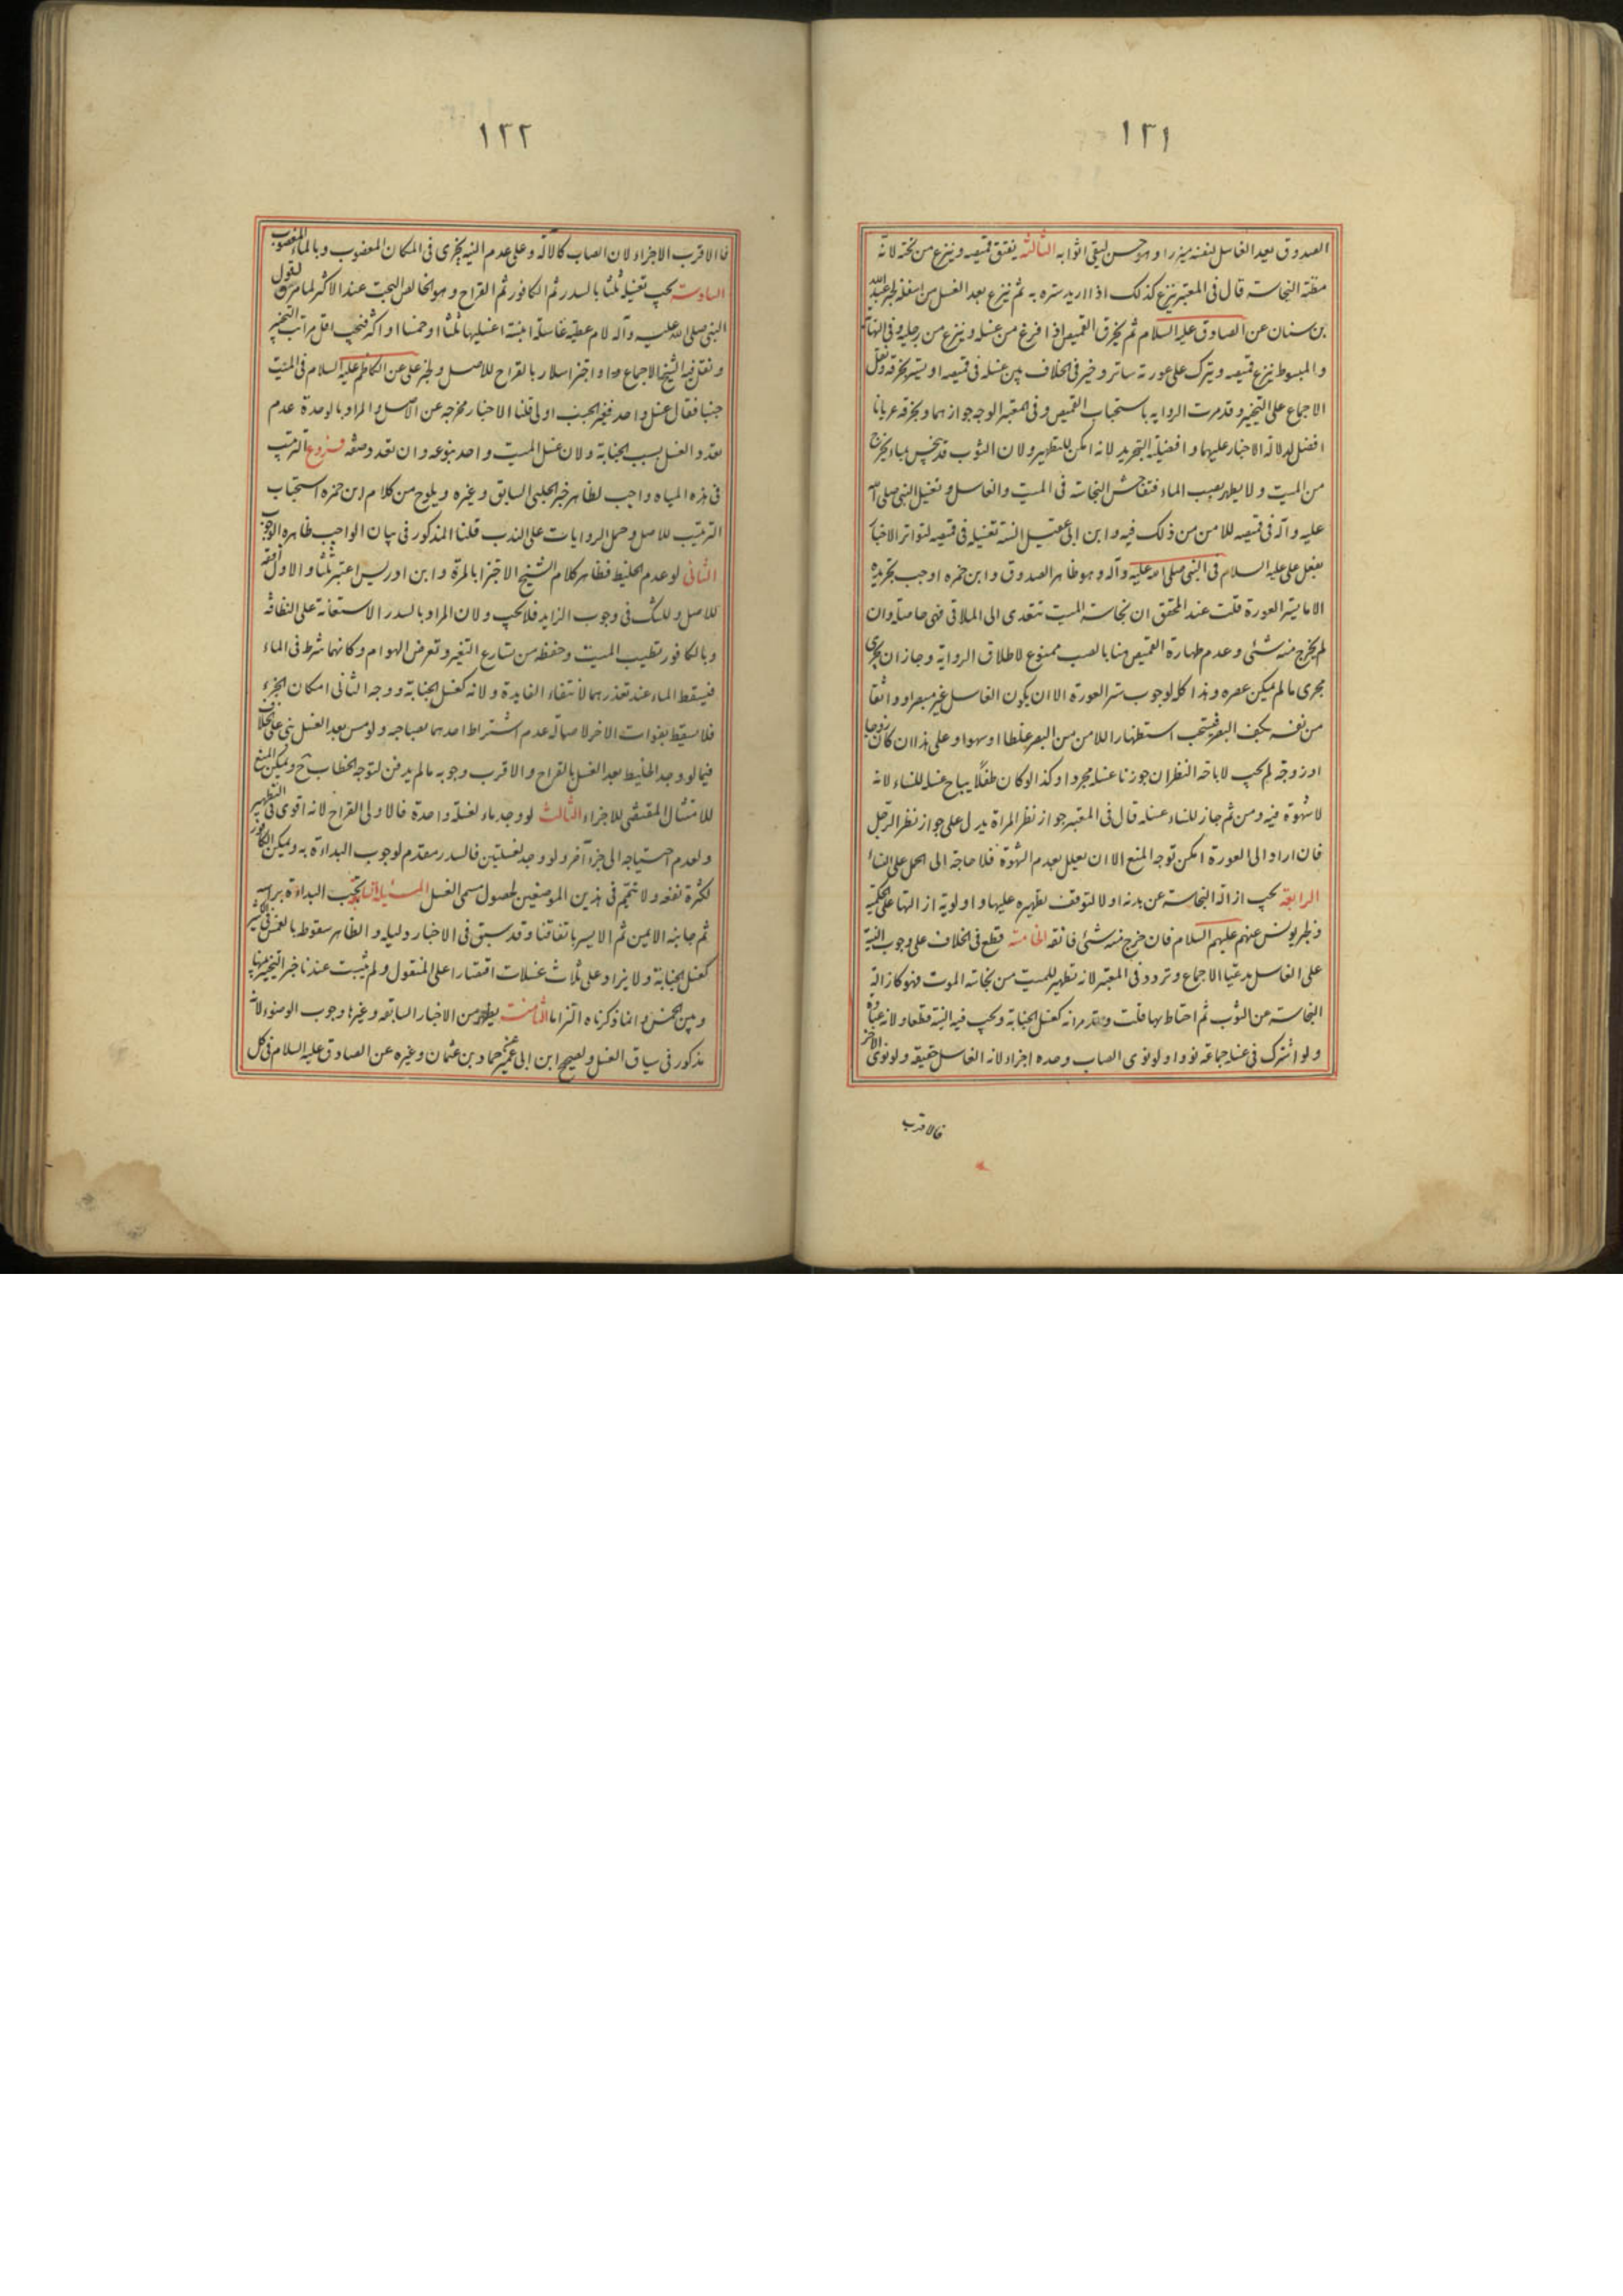 ١٢١
الصدوق يعد الغاسل لنفسه ميزرا وهو حسن ليقي اثوابه الثالثة يفتق قميصه وينزع من تحته لانه
مظنة النجاسة قال في المعتبر ينزع كذلك اذا اريد ستره به ثم ينزع بعد الغسل من اسفله لخبر عبد الله
بن سنان عن الصادق عليه السلام ثم يخرق القميص اذا فرغ من غسله وينزع من رجليه وفي النهاية
والمبسوط ينزع قميصه ويترك على عورته ساتر وخير في الخلاف بين غسله في قميصه او يستر بخرقة ونقل
الاجماع على التخيير وقد مرت الرواية باستحباب القميص وفي المعتبر الوجه جوازهما وبخرقة عريانا
افضل لدلالة الاخبار عليهما وافضلية التجريد لانه امكن للتطهير ولان الثوب قد ينجس بماء يخرج
من الميت ولا يطهر بصب الماء فتفاحش النجاسة في الميت والغاسل وتغسيل النبي صلى الله
عليه وآله في قميصه للامن من ذلك فيه وابن ابي عقيل السنة تغسيله في قميصه لتواتر الاخبار
بفعل علي عليه السلام في النبي صلى الله عليه وآله وهو ظاهر الصدوق وابن حمزه اوجب تجريده
الا ما يستر العورة قلت عند المحقق ان نجاسة الميت تتعدى الى الملاقي فهي حاصلة وان
لم يخرج منه شئ وعدم طهارة القميص هنا بالصب ممنوع لاطلاق الرواية وجاز ان يجري
مجرى ما لم يمكن عصره وهذا كله لوجوب ستر العورة الا ان يكون الغاسل غير مبصر او واثقا
من نفسه بكف البصر فيستحب استظهارا للامن من البصر غلطا او سهوا وعلى هذا ان كان زوجا
او زوجة لم يجب لاباحة النظر ان جوزنا غسله مجردا وكذا لو كان طفلا يباح غسله للنساء لانه
لا شهوة فيه ومن ثم جاز للنساء غسله قال في المعتبر جواز نظر المراة يدل على جواز نظر الرجل
فان اراد الى العورة امكن توجه المنع الا ان يعلل بعدم الشهوة فلا حاجة الى الحمل على النساء
الرابعة يجب ازالة النجاسة عن بدنه اولا لتوقف تطهيره عليها واولوية ازالتها على الحكمية
ولخبر يونس عنهم عليهم السلام فان خرج منه شئ فانقه الخامسة قطع في الخلاف على وجوب النية
على الغاسل مدعيا الاجماع وتردد في المعتبر لانه تطهير للميت من نجاسة الموت فهو كازالة
النجاسة عن الثوب ثم احتاط بها قلت وقد مر انه كغسل الجنابة ويجب فيه النية قطعا ولانه عبادة
ولو اشترك في غسله جماعة نووا ولو نوى الصاب وحده اجزاء لانه الغاسل حقيقة ولو نوى الاخر
فالاقرب
١٢٢
فالاقرب الاجزاء لان الصاب كالآلة وعلى عدم النية يجزى في المكان المغصوب وبالماء المغصوب
السادسة يجب تغسيله ثلثا بالسدر ثم الكافور ثم القراح وهو الخالص البحت عند الاكثر لما مر ولقول
النبي صلى الله عليه وآله لام عطية غاسلة ابنته اغسليها ثلثا او خمسا او اكثر فيجب اقل مراتب التخيير
ونقل فيه الشيخ الاجماع واجتزا سلار بالقراح للاصل ولخبر علي عن الكاظم عليه السلام في الميت
جنبا فقال غسل واحد فغير الجنب اولى قلنا الاخبار مخرجه عن الاصل والمراد بالوحدة عدم
تعدد الغسل بسبب الجنابة ولان غسل الميت واحد بنوعه وان تعدد صنفه فروع الترتيب
في هذه المياه واجب لظاهر خبر الحلبي السابق وغيره ويلوح من كلام ابن حمزه استحباب
الترتيب للاصل وحمل الروايات على الندب قلنا المذكور في بيان الواجب ظاهره الوجوب
الثاني لو عدم الخليط فظاهر كلام الشيخ الاجتزا بالمرة وابن ادريس اعتبر ثلثا والاول اوفق
للاصل وللشك في وجوب الزايد فلا يجب ولان المراد بالسدر الاستعانة على النظافة
وبالكافور تطييب الميت وحفظه من تسارع التغير وتعرض الهوام وكانهما شرط في الماء
فيسقط الماء عند تعذرهما لانتفاء الفايدة ولانه كغسل الجنابة ووجه الثاني امكان الجزء
فلا يسقط بفوات الاخر لاصالة عدم اشتراط احدهما بصاحبه ولو مس بعد الغسل بني على الخلاف
فيما لو وجد الخليط بعد الغسل بالقراح والاقرب وجوبه ما لم يدفن لتوجه الخطاب ح ويمكن المنع
للامتثال المقتضي للاجزاء الثالث لو وجد ماء لغسلة واحدة فالاولى القراح لانه اقوى في التطهير
ولعدم احتياجه الى جزء آخر ولو وجد لغسلتين فالسدر مقدم لوجوب البداءة به ويمكن الكافور
لكثرة نفعه ولا تيمم في هذين الموضعين لحصول مسمى الغسل المسئلة السابعة يجب البداءة براسه
ثم جانبه الايمن ثم الايسر باتفاقنا وقد سبق في الاخبار دليله والظاهر سقوطه بالغمس في الكثير
كغسل الجنابة ولا يزاد على ثلاث غسلات اقتصارا على المنقول ولم يثبت عندنا خبر التخيير بينها
وبين الخمس وانما ذكرناه التزاما الثامنة يظهر من الاخبار السابقة وغيرها وجوب الوضوء لانه
مذكور في سياق الغسل ولصحيح ابن ابي عمير عن حماد بن عثمان وغيره عن الصادق عليه السلام في كل